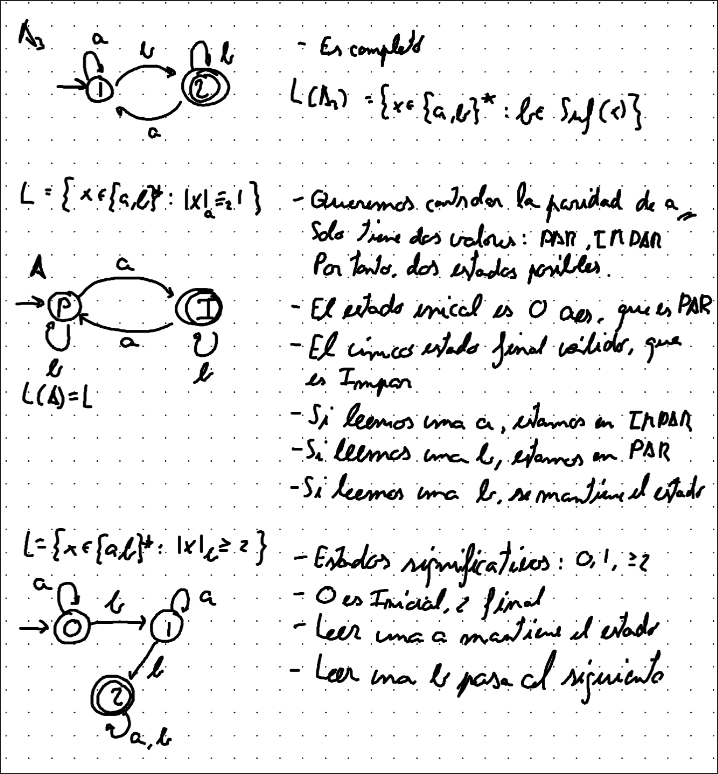 A₃
a
b
b
1
2
a
- Es completo
L(A₃) = {x ∈ {a,b}* : b ∈ Suf(x)}
L = {x ∈ {a,b}* : |x|ₐ ≡₂ 1}
- Queremos controlar la paridad de a,
Solo tiene dos valores: PAR, IMPAR
Por tanto, dos estados posibles.
A
a
P
I
a
b
b
L(A)=L
- El estado inicial es 0 aes, que es PAR
- El único estado final válido, que
es Impar
- Si leemos una a, estamos en IMPAR
- Si leemos una b, estamos en PAR
- Si leemos una b, se mantiene el estado
L={x ∈ {a,b}* : |x|_b ≥ 2}
a
b
a
0
1
b
2
a,b
- Estados significativos: 0, 1, ≥2
- 0 es Inicial, 2 final
- Leer una a mantiene el estado
- Leer una b pasa al siguiente